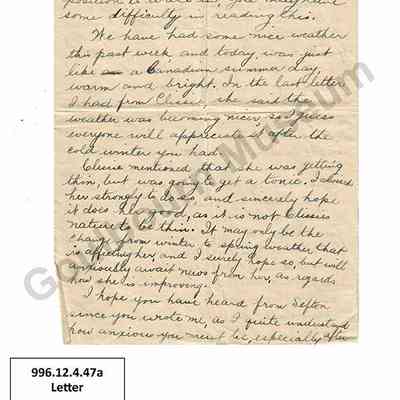 position to write in, you may have
some difficulty in reading this.
We have had some nice weather
this past week and today was just
like a Canadian summer day,
warm and bright. In the last letter
I had from Clissie, she said the
weather was becoming nicer, so I guess
everyone will appreciate it after the
cold winter you had.
Clissie mentioned that she was getting
thin, but was going to get a tonic. I advised
her strongly to do so, and sincerely hope
it does her good, as it is not Clissies
nature to be thin. It may only be the
change from winter to spring weather, that
is affecting her, and I surely hope so, but will
anxiously await news from her, as regards
how she is improving.
I hope you have heard from Sefton
since you wrote me, as I quite understand
how anxious you must be, especially after
Museum
996.12.4.47a
Letter